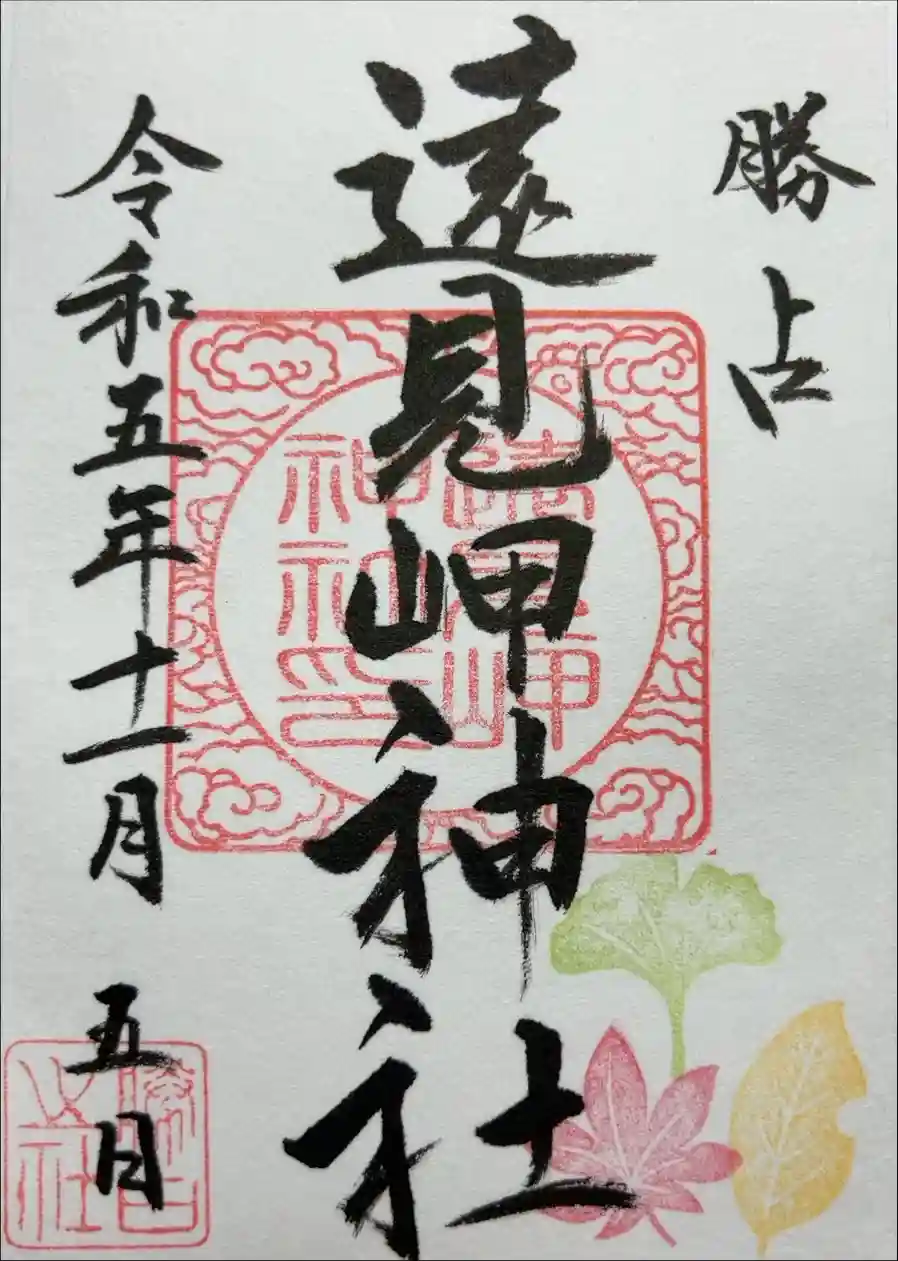 勝占
遠見岬神社
令和五年十一月 五日
遠見岬
神社印